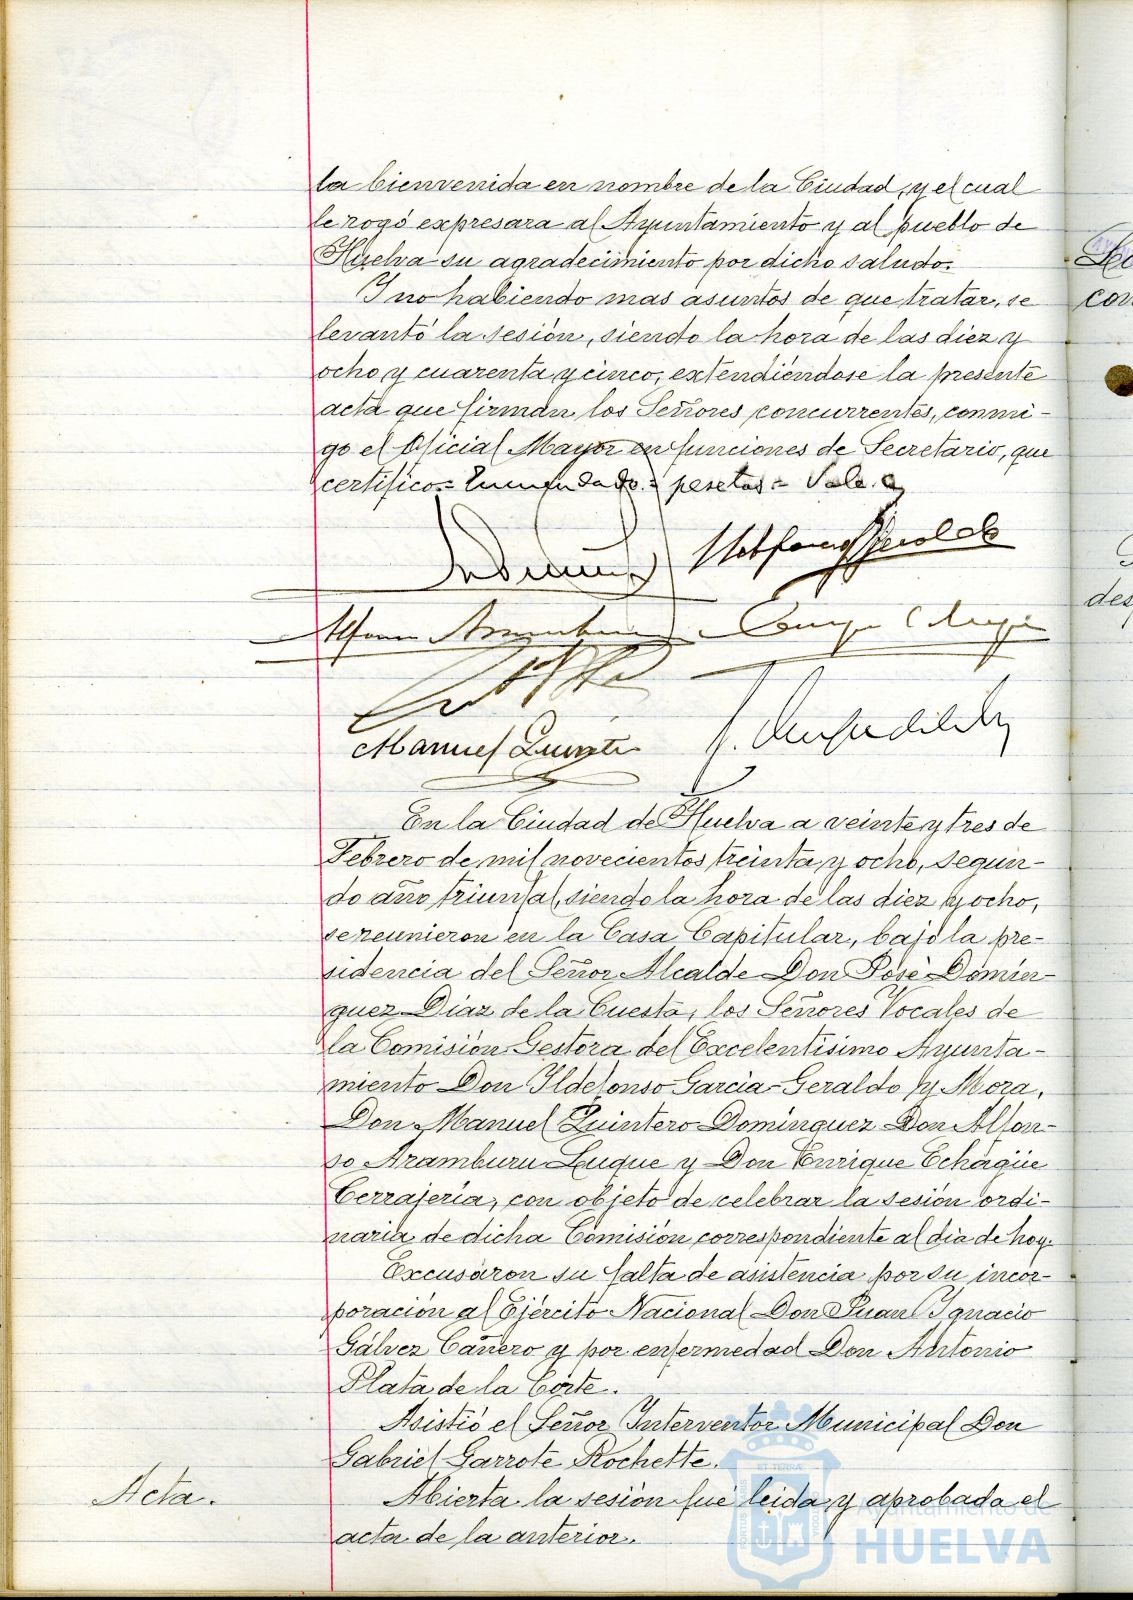 la bienvenida en nombre de la Ciudad, y el cual
le rogó expresara al Ayuntamiento y al pueblo de
Huelva su agradecimiento por dicho saludo.
Y no habiendo mas asuntos de que tratar, se
levantó la sesión, siendo la hora de las diez y
ocho y cuarenta y cinco, extendiéndose la presente
acta que firman los Señores concurrentes, conmi-
go el Oficial Mayor en funciones de Secretario, que
certifico = Enmendado = pesetas = Vale.
Alfonso Aramburu
Manuel Quintero
En la Ciudad de Huelva a veinte y tres de
Febrero de mil novecientos treinta y ocho, Segun-
do año triunfal, siendo la hora de las diez y ocho,
se reunieron en la Casa Capitular, bajo la pre-
sidencia del Señor Alcalde Don José Domín-
guez Díaz de la Cuesta, los Señores Vocales de
la Comisión Gestora del Excelentísimo Ayunta-
miento Don Ildefonso García-Geraldo y Mora,
Don Manuel Quintero Domínguez Don Alfon-
so Aramburu Luque y Don Enrique Echagüe
Cerrajería, con objeto de celebrar la sesión ordi-
naria de dicha Comisión correspondiente al día de hoy.
Excusaron su falta de asistencia por su incor-
poración al Ejército Nacional Don Juan Ignacio
Gálvez Cañero y por enfermedad Don Antonio
Plata de la Corte.
Asistió el Señor Interventor Municipal Don
Gabriel Garrote Rochette.
Acta.
Abierta la sesión fué leida y aprobada el
acta de la anterior.
Ayuntamiento de
HUELVA